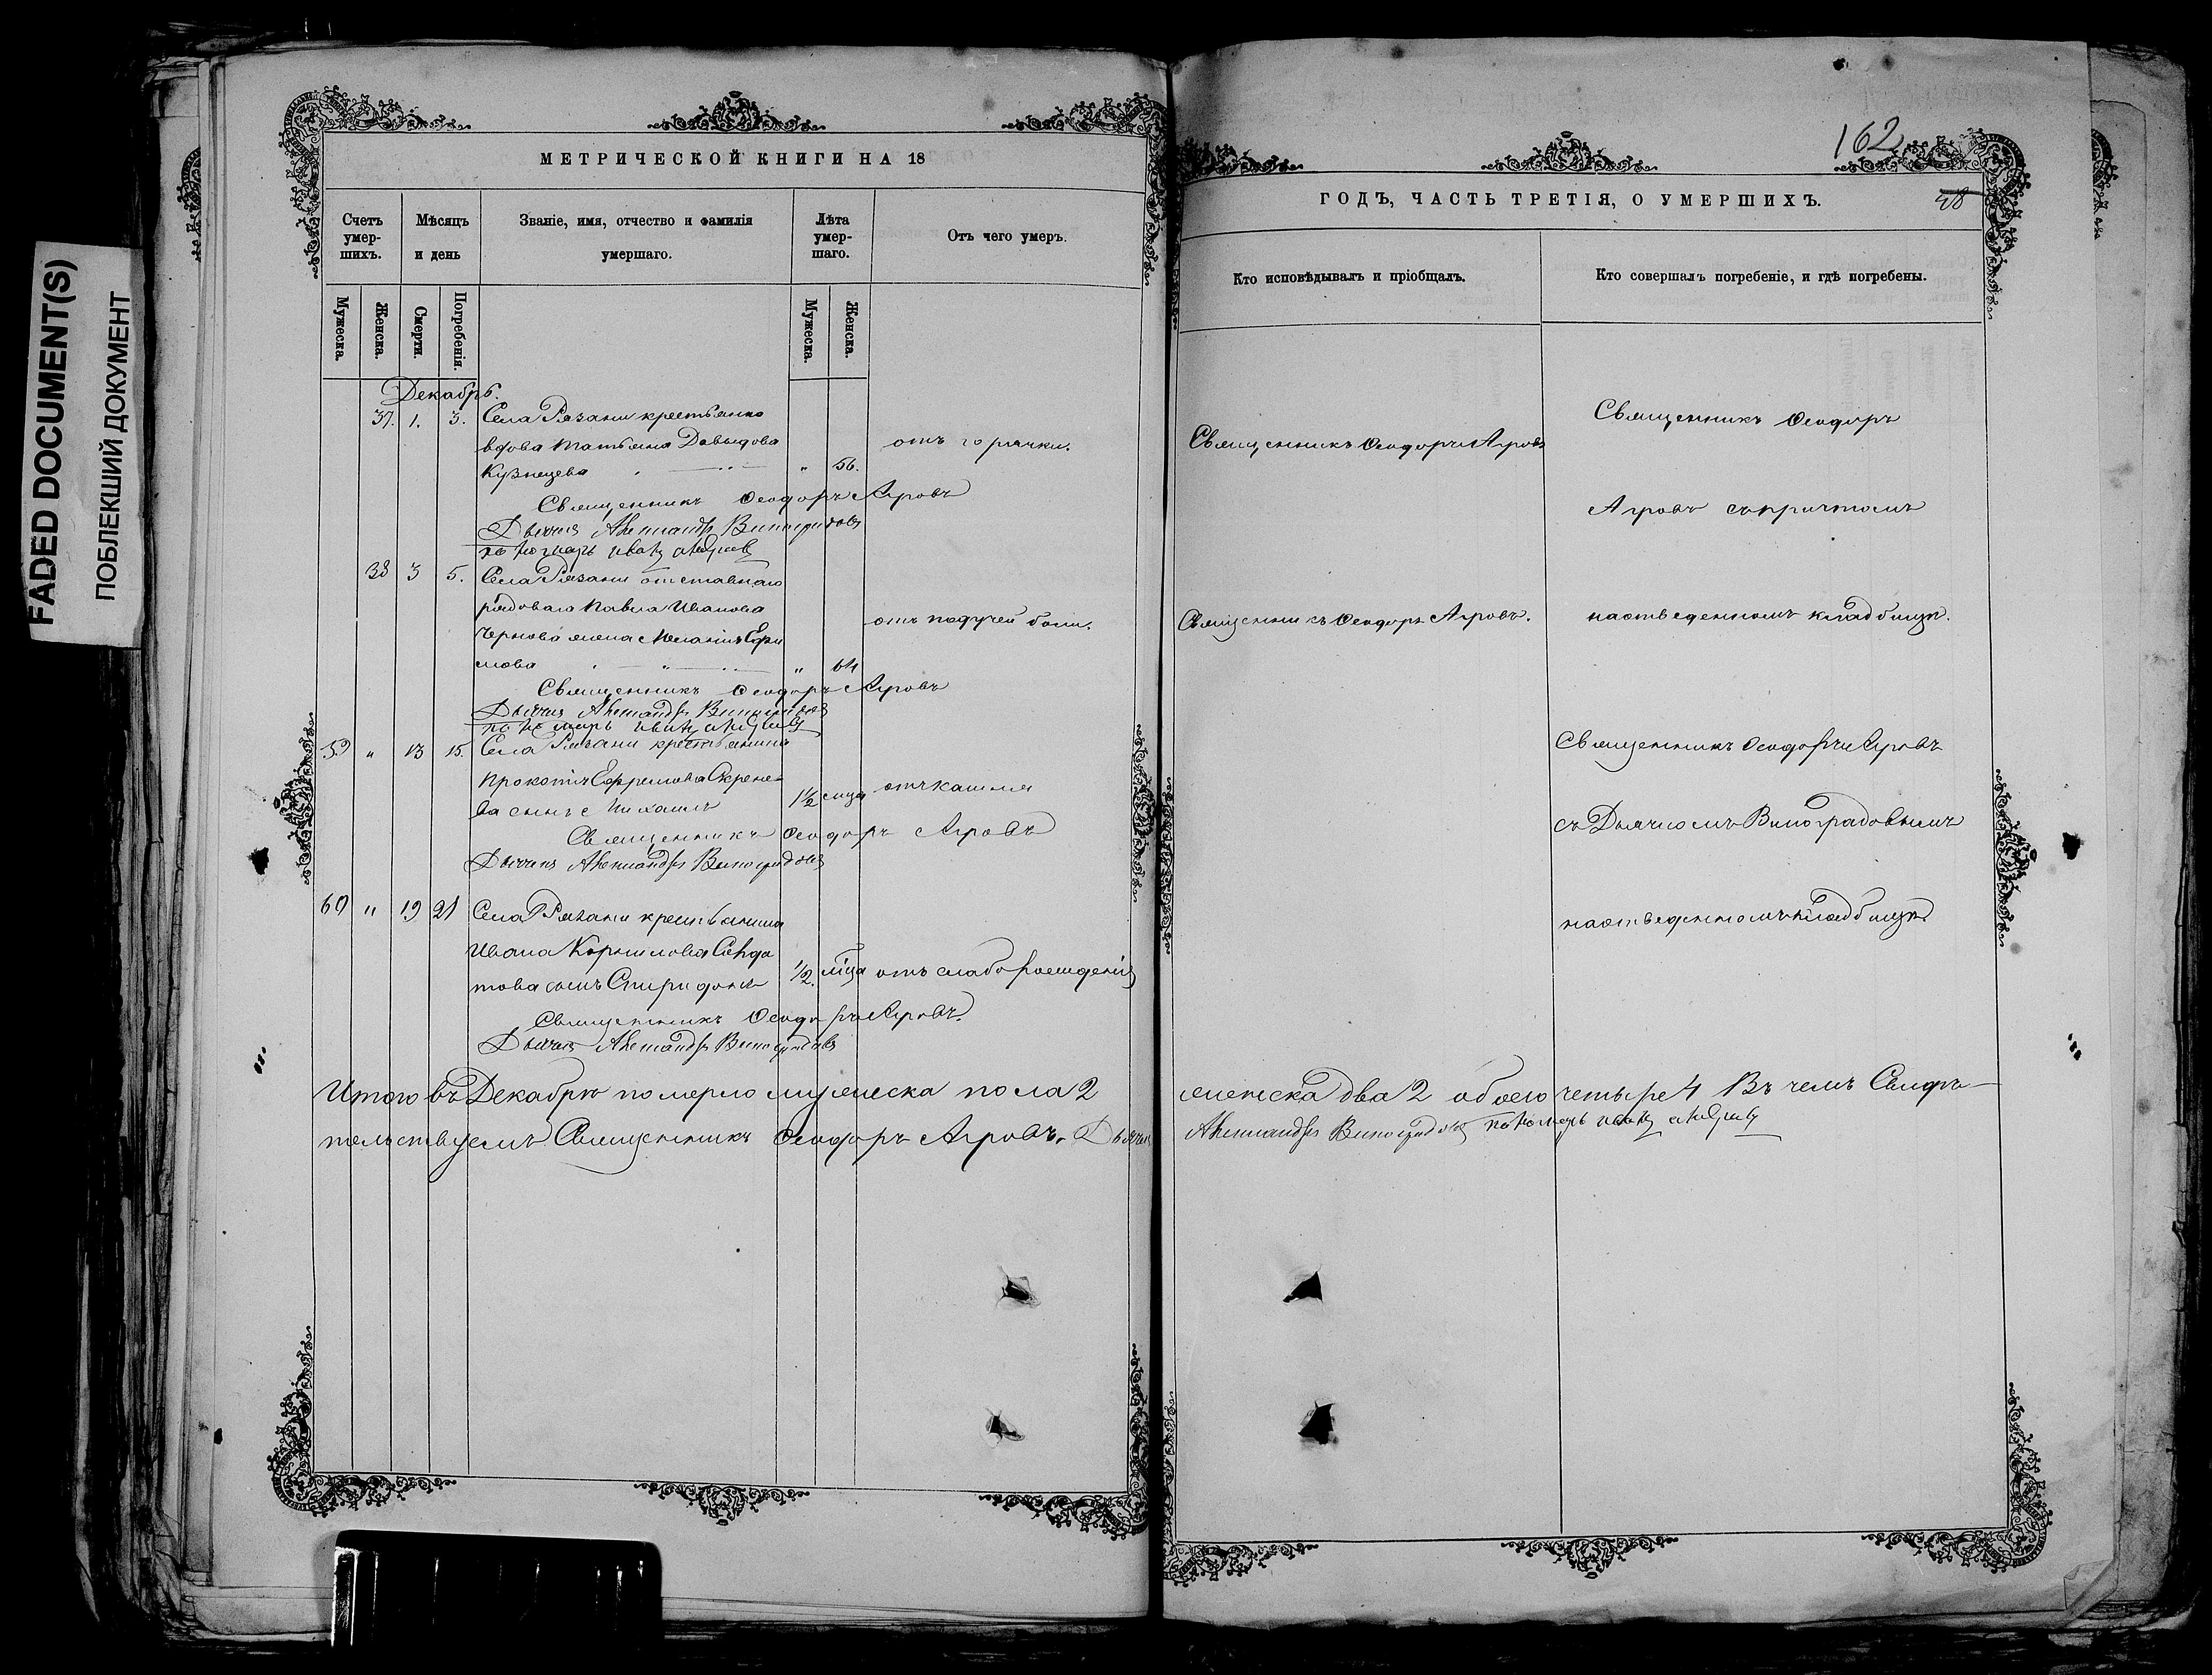 FADED DOCUMENT(S)
ПОБЛЕКШИЙ ДОКУМЕНТ
МЕТРИЧЕСКОЙ КНИГИ НА 18
Счетъ умер-шихъ.
Мѣсяцъ и день
Званіе, имя, отчество и фамилія умершаго.
Лѣта умер-шаго.
Отъ чего умеръ.
Мужеска.
Женска.
Смерти.
Погребенія.
Мужеска.
Женска.
Декабрь.
37. 1. 3. Села Рязани крестьянка
вдова Татьяна Давыдова
отъ горячки.
Кузнецова " 56.
Священникъ Ѳеодоръ Агровъ
Дьячекъ Александръ Виноградовъ
пономарь
38 3 5. Села Рязани отставнаго
рядоваго Павла Иванова
отъ падучей боли.
Чернова жена Меланія Ефи
мова " 64
Священникъ Ѳеодоръ Агровъ
Дьячекъ Александръ Виноградовъ
пономарь
59 " 13 15. Села Рязани крестьянина
Прокопія Ефремова
1½ мца отъ кашля
ва сынъ Михаилъ
Священникъ Ѳеодоръ Агровъ
Дьячекъ Александръ Виноградовъ
60 " 19 21 Села Рязани крестьянина
Ивана Корнилова
½. мца отъ слаборожденія
това сынъ Спиридонъ
Священникъ Ѳеодоръ Агровъ.
Дьячекъ Александръ Виноградовъ
Итого въ Декабрѣ померло мужеска пола 2
тельствуемъ Священникъ Ѳеодоръ Агровъ. Дьячекъ
162
48
ГОДЪ, ЧАСТЬ ТРЕТІЯ, О УМЕРШИХЪ.
Кто исповѣдывалъ и пріобщалъ.
Кто совершалъ погребеніе, и гдѣ погребены.
Священникъ Ѳеодоръ
Священникъ Ѳеодоръ Агровъ
Агровъ съ причтомъ
Священникъ Ѳеодоръ Агровъ.
на отведенномъ кладбищѣ.
Священникъ Ѳеодоръ Агровъ
съ Дьячкомъ Виноградовымъ
на отведенномъ кладбищѣ
женска два 2 обоего четыре 4 Въ чемъ Свидѣ-
Александръ Виноградовъ пономарь